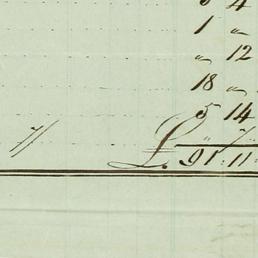 1 "
" 12
18 "
5 14
7/ " 7
£ 91 : 11 :